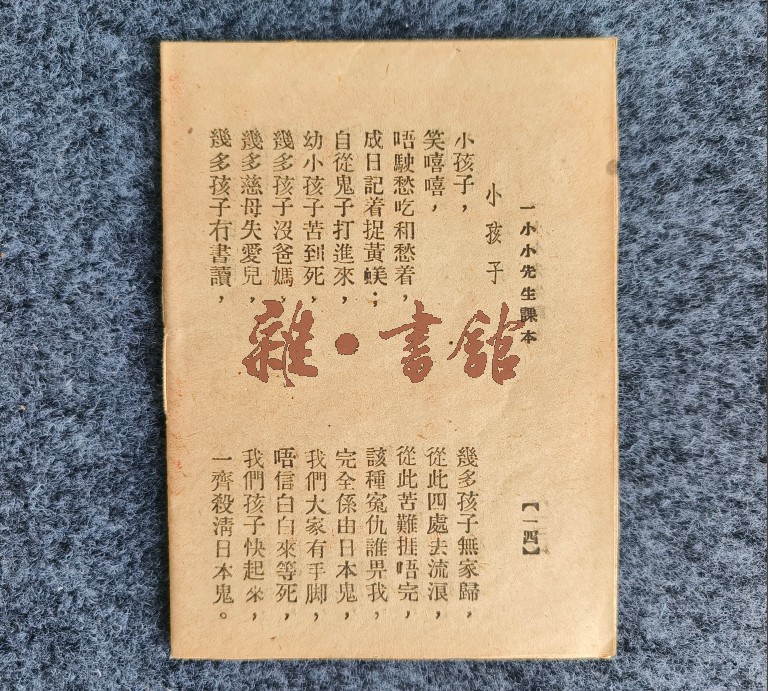 一小小先生課本
【一四】
小孩子
小孩子，
笑嘻嘻，
唔駛愁吃和愁着，
成日記着捉黃蜞；
自從鬼子打進來，
幼小孩子苦到死，
幾多孩子沒爸媽，
幾多慈母失愛兒，
幾多孩子冇書讀，
幾多孩子無家歸，
從此四處去流浪，
從此苦難捱唔完，
該種冤仇誰畀我，
完全係由日本鬼，
我們大家有手脚，
唔信白白來等死，
我們孩子快起來，
一齊殺淸日本鬼。
雜•書館